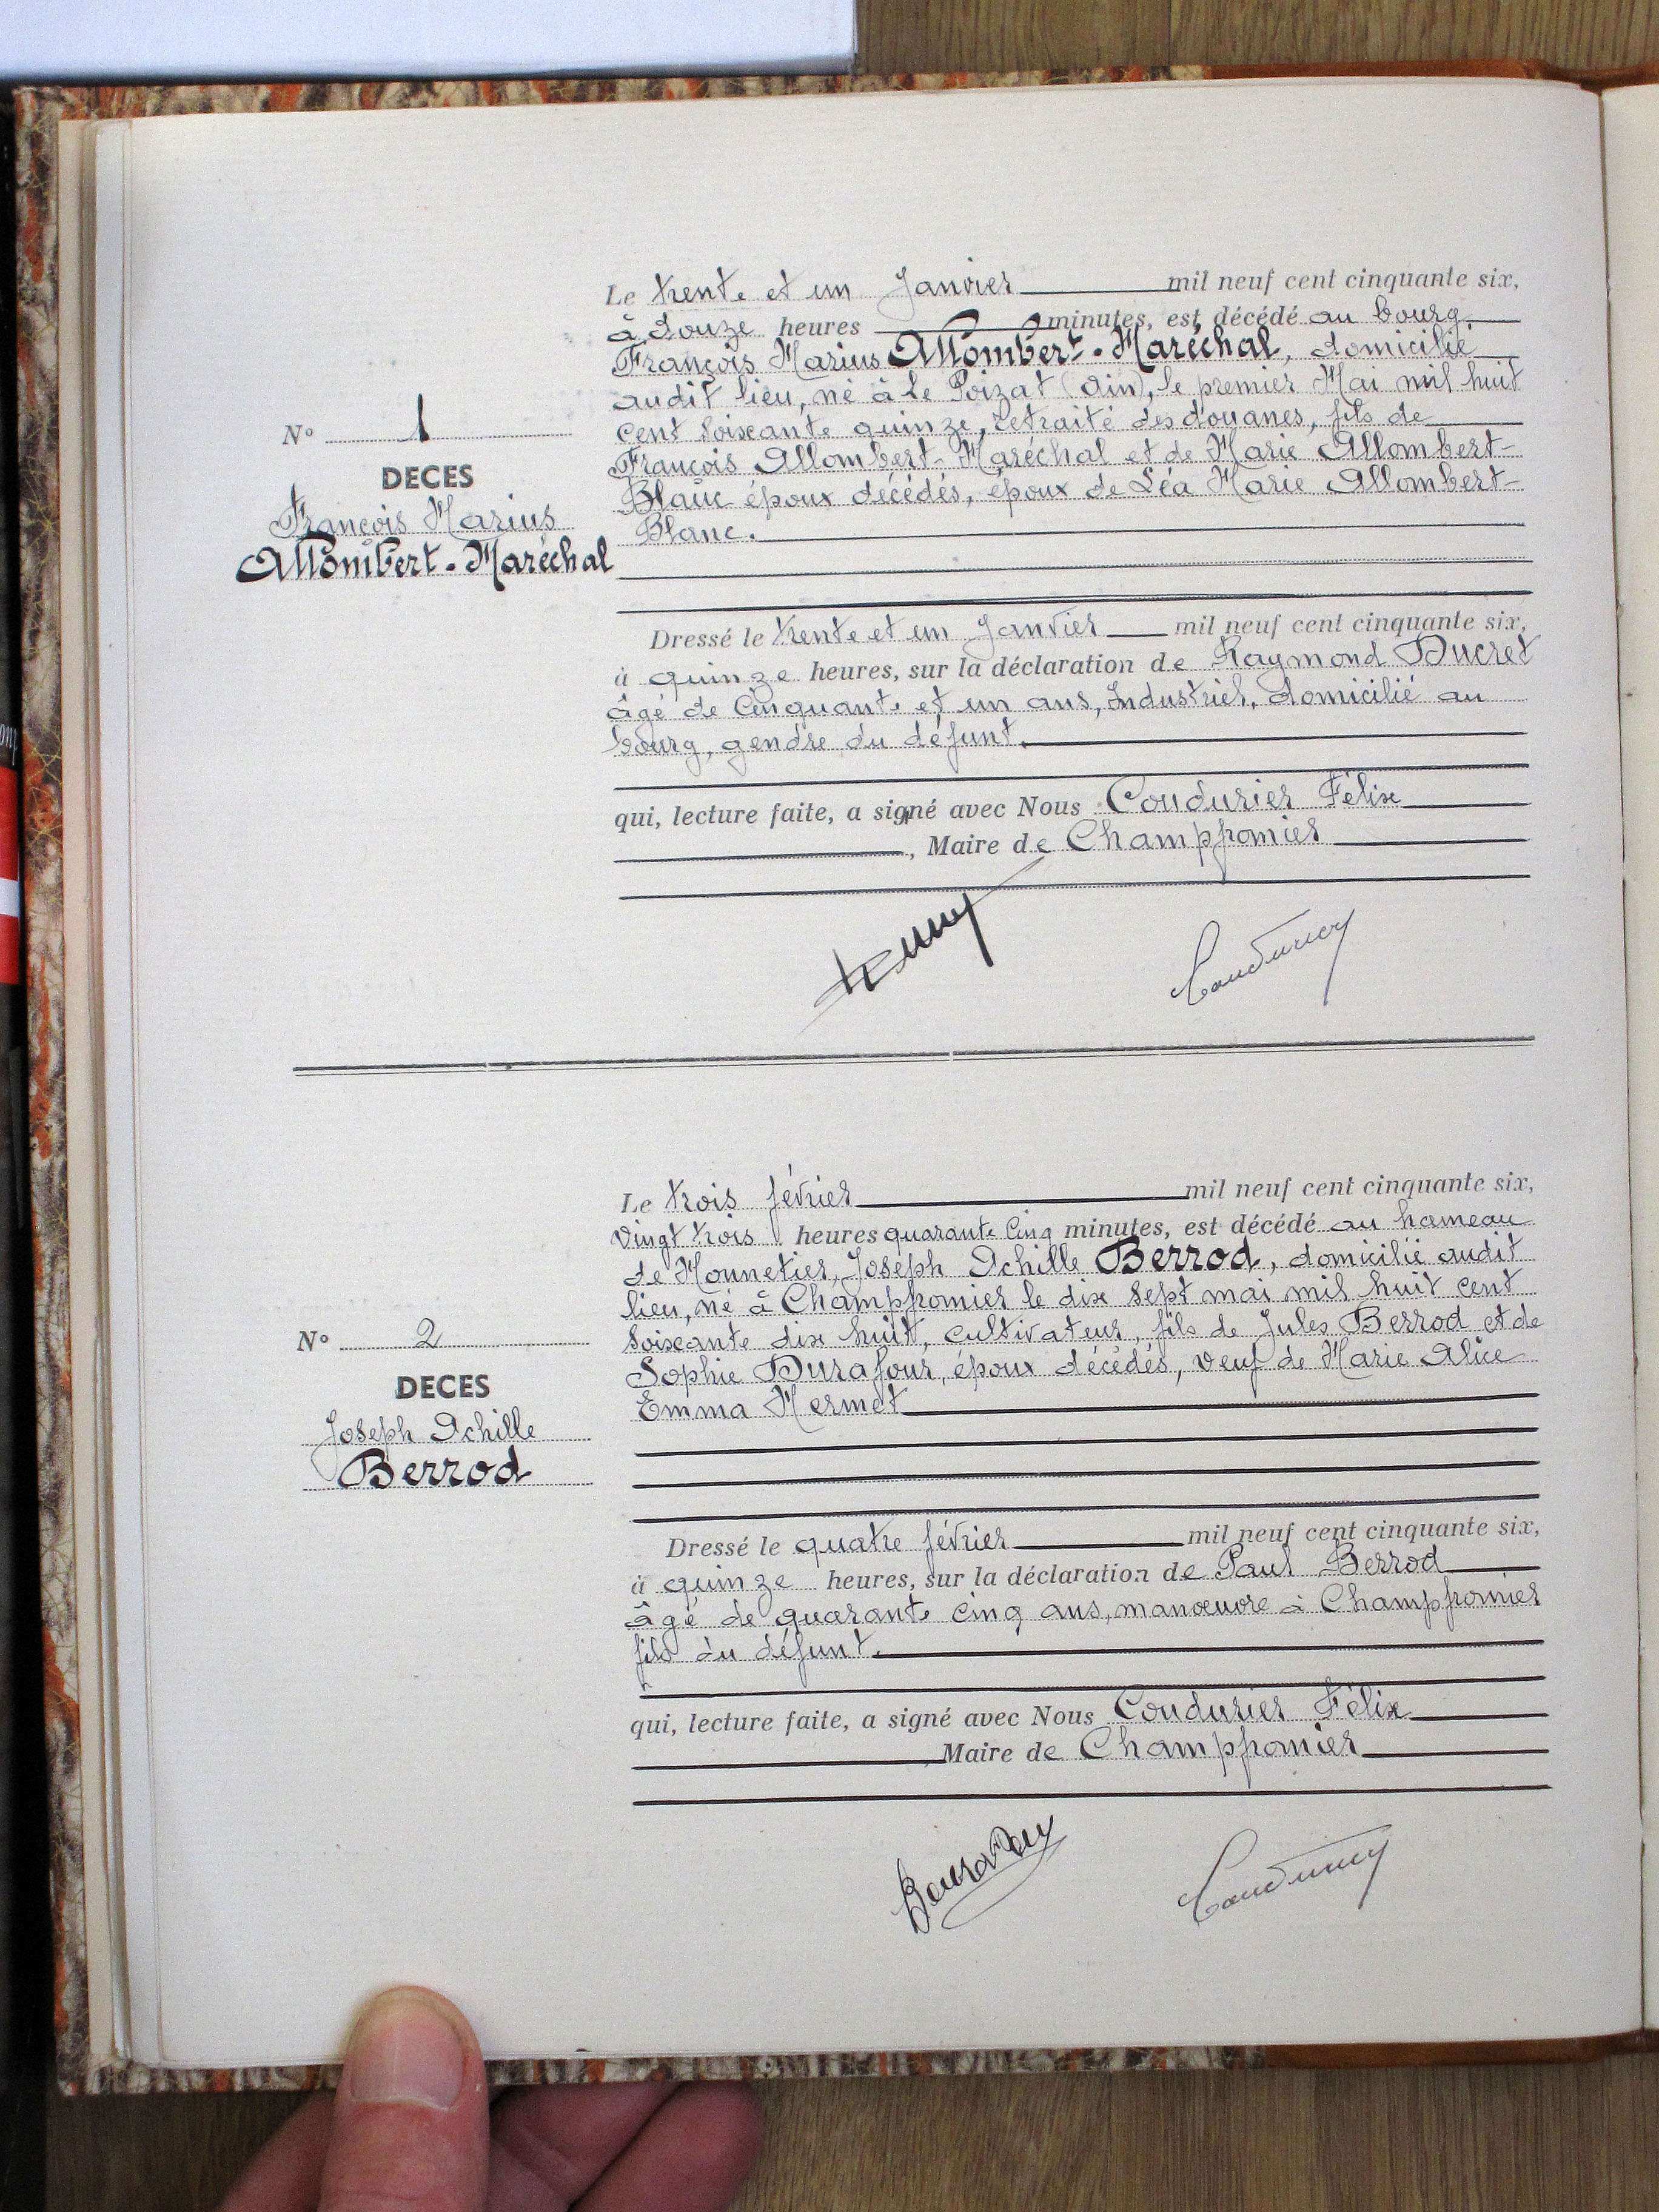 Le trente et un Janvier mil neuf cent cinquante six,
à douze heures minutes, est décédé au bourg
François Marius Allombert-Maréchal, domicilié
audit lieu, né à Le Poizat (Ain), le premier Mai mil huit
cent soixante quinze, retraité des douanes, fils de
François Allombert-Maréchal et de Marie Allombert-
Blanc époux décédés, époux de Léa Marie Allombert-
Blanc.
N° 1
DECES
François Marius
Allombert-Maréchal
Dressé le trente et un Janvier mil neuf cent cinquante six,
à quinze heures, sur la déclaration de Raymond Ducret
âgé de Cinquante et un ans, Industriel, domicilié au
bourg, gendre du défunt.
qui, lecture faite, a signé avec Nous Coudurier Félix
, Maire de Champfromier
Coudurier
Le trois février mil neuf cent cinquante six,
Vingt trois heures quarante cinq minutes, est décédé au hameau
de Monnetier, Joseph Achille Berrod, domicilié audit
lieu, né à Champfromier le dix sept mai mil huit cent
soixante dix huit, cultivateur, fils de Jules Berrod et de
Sophie Durafour, époux décédés, veuf de Marie Alice
Emma Mermet
N° 2
DECES
Joseph Achille
Berrod
Dressé le quatre février mil neuf cent cinquante six,
à quinze heures, sur la déclaration de Paul Berrod
âgé de quarante cinq ans, manœuvre à Champfromier
fils du défunt.
qui, lecture faite, a signé avec Nous Coudurier Félix
Maire de Champfromier
Coudurier